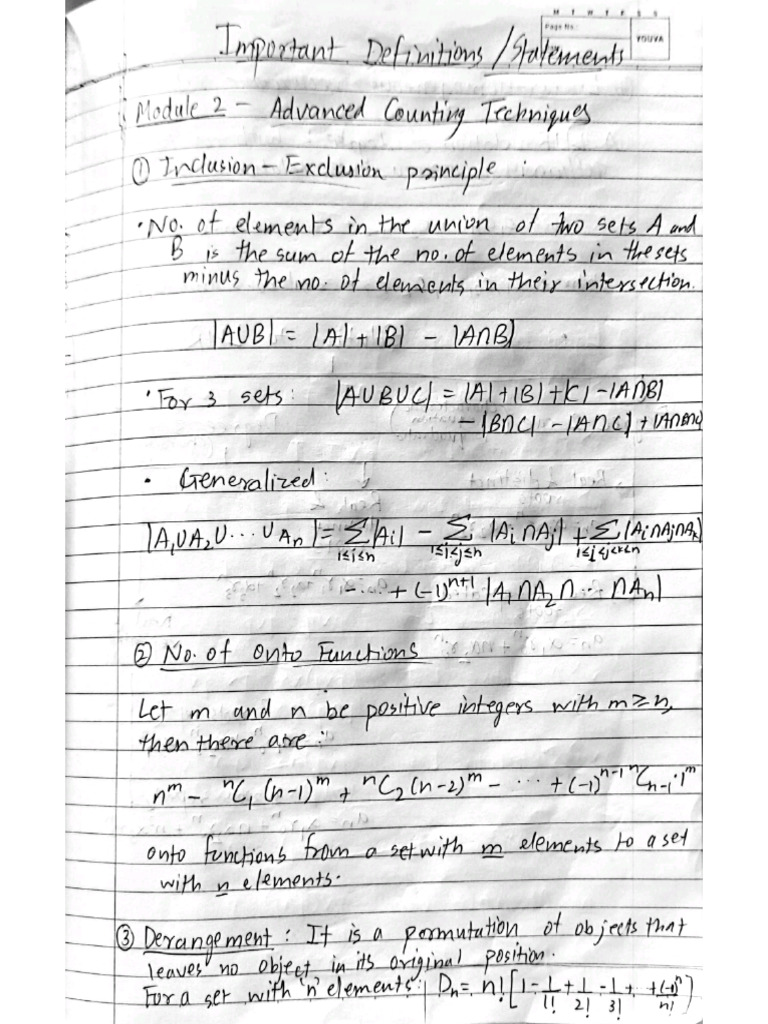 M T W T F S S
Page No.:
YOUVA
Important Definitions / Statements
Module 2 - Advanced Counting Techniques
① Inclusion - Exclusion principle :
• No. of elements in the union of two sets A and
B is the sum of the no. of elements in the sets
minus the no. of elements in their intersection.
|A∪B| = |A| + |B| - |A∩B|
• For 3 sets: |A∪B∪C| = |A|+|B|+|C| - |A∩B|
- |B∩C| - |A∩C| + |A∩B∩C|
• Generalized:
|A₁∪A₂∪ ··· ∪Aₙ| = Σ_{1≤i≤n} |Ai| - Σ_{1≤i<j≤n} |Ai∩Aj| + Σ_{1≤i<j<k≤n} |Ai∩Aj∩Ak|
- ·· + (-1)ⁿ⁺¹ |A₁∩A₂∩ ·· ∩Aₙ|
② No. of Onto Functions
Let m and n be positive integers with m ≥ n,
then there are :
nᵐ - ⁿC₁ (n-1)ᵐ + ⁿC₂ (n-2)ᵐ - ··· + (-1)ⁿ⁻¹ ⁿCₙ₋₁ · 1ᵐ
onto functions from a set with m elements to a set
with n elements.
③ Derangement : It is a permutation of objects that
leaves no object in its original position.
For a set with 'n' elements: Dₙ = n! [1 - 1/1! + 1/2! - 1/3! + ·· +(-1)ⁿ/n!]